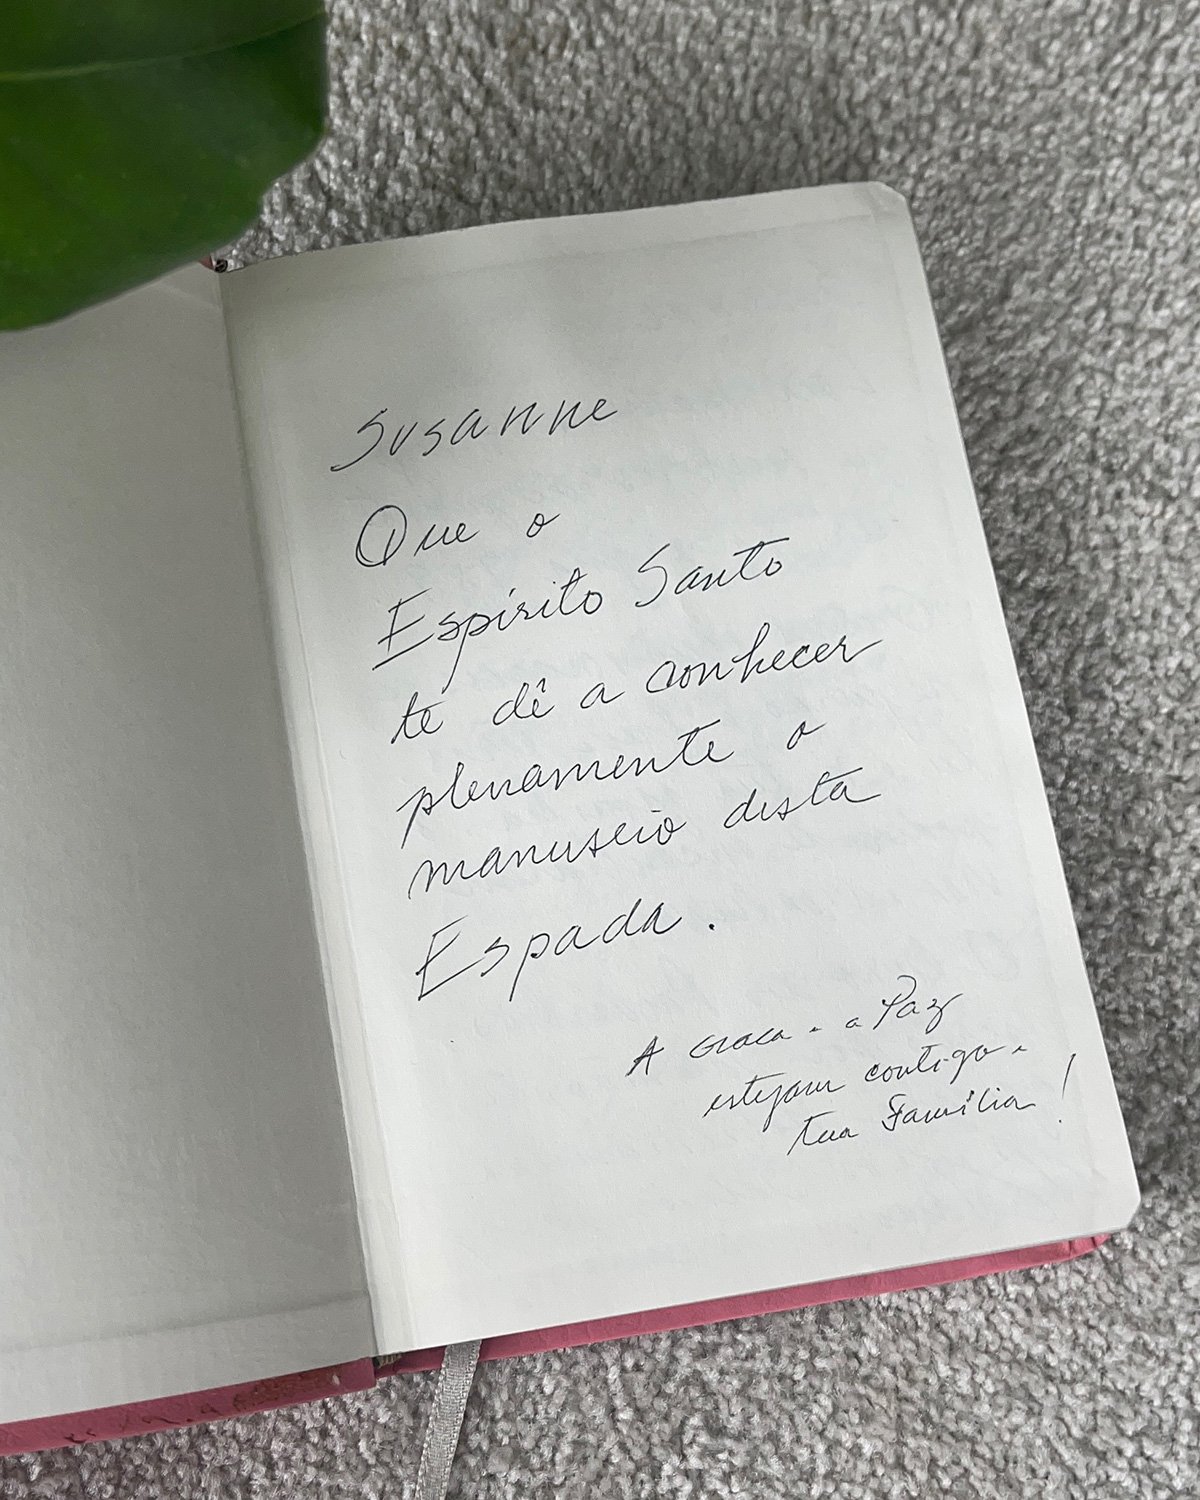 Susanne
Que o
Espírito Santo
te dê a conhecer
plenamente o
manuseio desta
Espada.
A Graca e a Paz
estejam contigo e
tua Família!